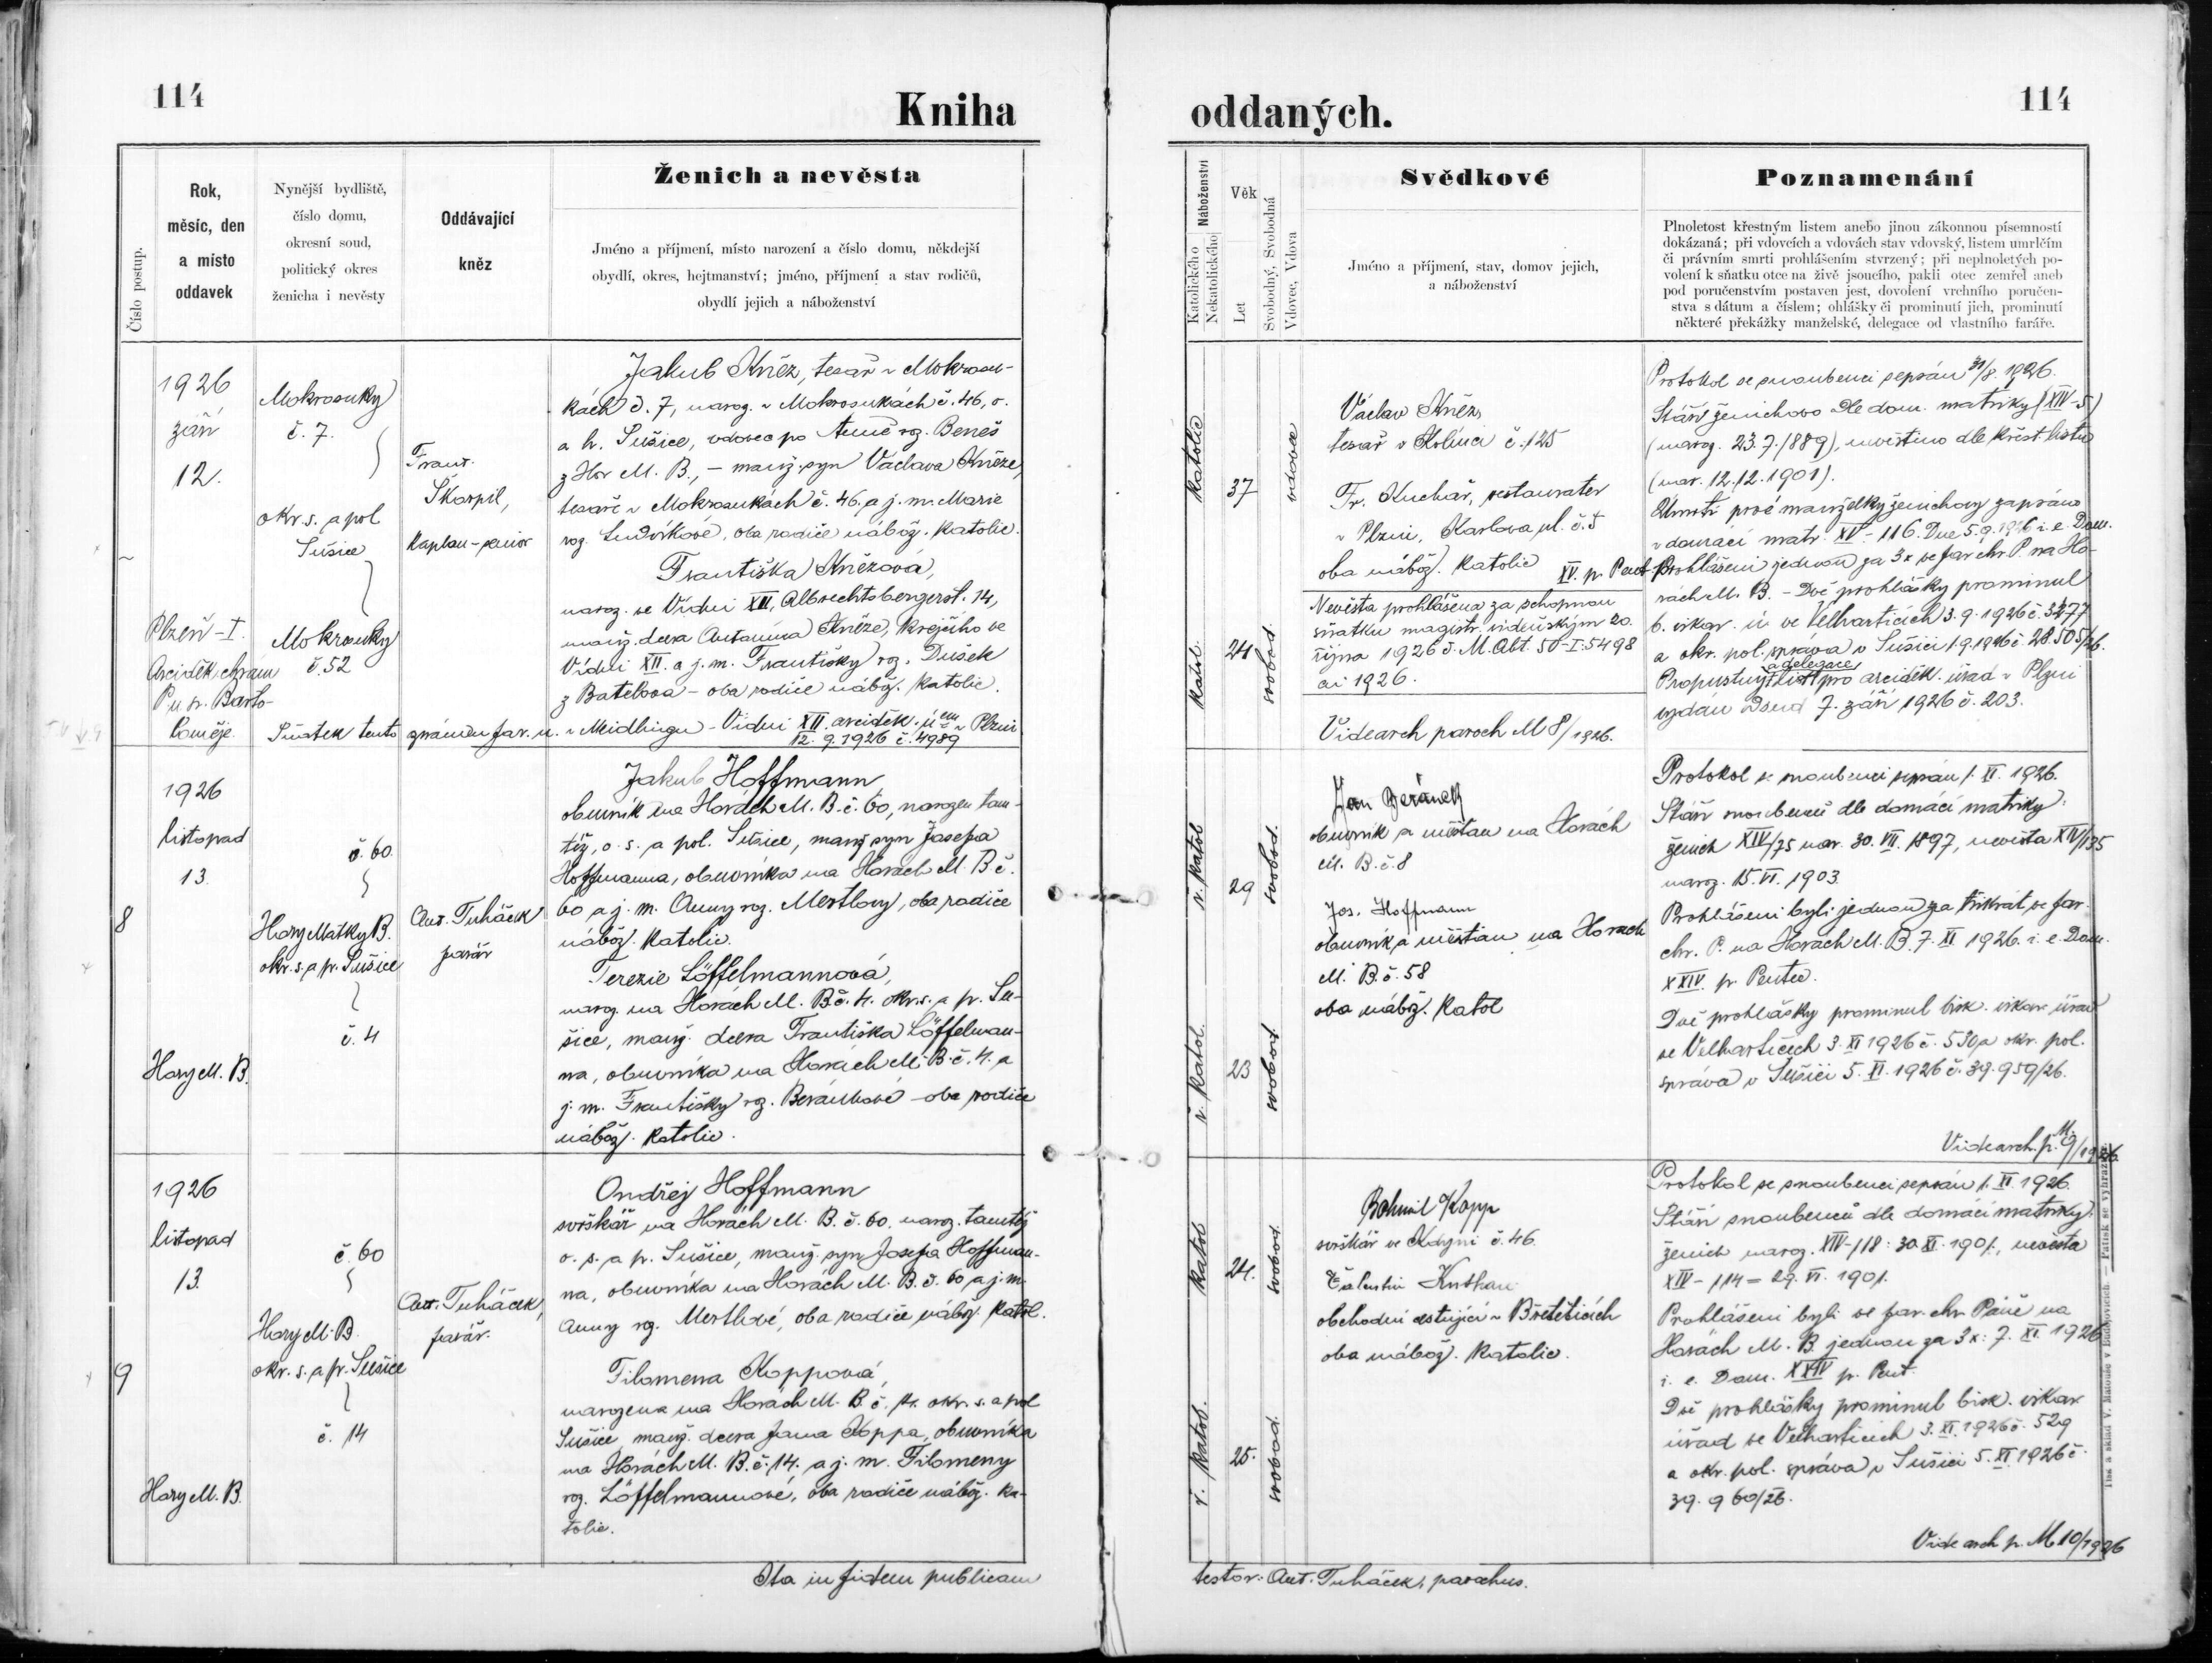 114
Kniha
Číslo postup.
Rok,
měsíc, den
a místo
oddavek
Nynější bydliště,
číslo domu,
okresní soud,
politický okres
ženicha i nevěsty
Oddávající
kněz
Ženich a nevěsta
Jméno a příjmení, místo narození a číslo domu, někdejší
obydlí, okres, hejtmanství; jméno, příjmení a stav rodičů,
obydlí jejich a náboženství
1926
září
12.
Plzeň-I.
Arciděk. chrám
P. u sv. Barto-
loměje.
Mokrosuky
č. 7.
okr. s. a pol
Sušice
Mokrosuky
č. 52
Frant.
Škorpil,
kaplan-senior
Jakub Kněz, tesař v Mokrosu-
kách č. 7, naroz. v Mokrosukách č. 46, o.
a h. Sušice, vdovec po Anně roz. Beneš
z Hor M. B., – manž. syn Václava Kněze,
tesaře v Mokrosukách č. 46. a j. m. Marie
roz. Ludvíkové, oba rodiče nábož. katolic.
Františka Knězová,
naroz. ve Vídni XII, Albrechtsbergerst. 14,
manž. dcera Antonína Kněze, krejčího ve
Vídni XII. a j. m. Františky roz. Dušek
z Batelova - oba rodiče nábož. katolic.
Sňatek tento oznámen far. ú. v Meidlingu - Vídni XII. arciděk. úřem v Plzni
12. 9. 1926 č. 4989
8
1926
listopad
13.
Hory M. B.
č. 60.
Hory Matky B.
okr. s. a p. Sušice
č. 4
Ant. Tuháček
farář
Jakub Hoffmann
obuvník na Horách M. B. č. 60, narozen tam-
též, o. s. a pol. Sušice, manž. syn Josefa
Hoffmanna, obuvníka na Horách M. B. č.
60 a j. m. Anny roz. Mertlovy, oba rodiče
nábož. katolic.
Terezie Löffelmannová,
naroz. na Horách M. B. č. 4. okr. s. a p. Su-
šice, manž. dcera Františka Löffelman-
na, obuvníka na Horách M. B. č. 4. a
j. m. Františky roz. Beránkové - oba rodiče
nábož. katolic.
9
1926
listopad
13.
Hory M. B.
č. 60
Hory M. B.
okr. s. a p. Sušice
č. 14
Ant. Tuháček,
farář.
Ondřej Hoffmann
svrškář na Horách M. B. č. 60. naroz. tamtéž
o. s. a p. Sušice, manž. syn Josefa Hoffman-
na, obuvníka na Horách M. B. č. 60 a j. m.
Anny roz. Mertlové, oba rodiče nábož. katol.
Filomena Koppová,
narozena na Horách M. B. č. 14. okr. s. a pol
Sušice, manž. dcera Jana Koppa, obuvníka
na Horách M. B. č. 14. a j. m. Filomeny
roz. Löffelmannové, oba rodiče nábož. ka-
tolic.
Ita in fidem publicam
oddaných.
114
Náboženství
Katolického
Nekatolického
Věk
Let
Svobodný, Svobodná
Vdovec, Vdova
Svědkové
Jméno a příjmení, stav, domov jejich,
a náboženství
Poznamenání
Plnoletost křestným listem anebo jinou zákonnou písemností
dokázaná; při vdovcích a vdovách stav vdovský, listem umrlčím
či právním smrti prohlášením stvrzený; při neplnoletých po-
volení k sňatku otce na živě jsoucího, pakli otec zemřel aneb
pod poručenstvím postaven jest, dovolení vrchního poručen-
stva s dátum a číslem; ohlášky či prominutí jich, prominutí
některé překážky manželské, delegace od vlastního faráře.
katolic
37
vdovec
katol.
24
svobod.
Václav Kněz,
tesař v Kolinci č. 125
Fr. Kuchař, restaurater
v Plzni, Karlova ul. č. 5
oba nábož. katolic
Nevěsta prohlášena za schopnou
sňatku magistr. vídeňským 20.
října 1926 č. M. Abt. 50-I-5498
ai 1926.
Vide arch paroch M 8/1926.
Protokol se snoubenci sepsán 31/8. 1926.
Stáří ženichovo dle dom. matriky (XIV-5)
(naroz. 23.7.1889), nevěstino dle křest. listu
(nar. 12.12.1901).
Úmrtí prvé manželky ženichovy zapsáno
v domácí matr. XV-116. Dne 5.9.1926 i. e. Dom.
XV. p. Pent. Prohlášeni jednou za 3x ve far chr. P. na Ho-
rách M. B. - Dvě prohlášky prominul
b. vikar. ú. ve Velharticích 3.9.1926 č. 3477
a okr. pol. správa v Sušici 1.9.1926 č. 28.505/26.
a delegace
Propustný list pro arciděk. úřad v Plzni
vydán dne 7. září 1926 č. 203.
ř. katol
29
svobod.
ř. katol.
23
svobod
Jan Beránek
obuvník a měšťan na Horách
M. B. č. 8
Jos. Hoffmann
obuvník a měšťan na Horách
M. B. č. 58
oba nábož. katol
Protokol se snoubenci sepsán 1. XI. 1926.
Stáří snoubenců dle domácí matriky:
ženich XIV/75 nar. 30. VII. 1897, nevěsta XIV/135
naroz. 15. VI. 1903.
Prohlášeni byli jednou za třikrát ve far.
chr. P. na Horách M. B. 7. XI. 1926. i. e. Dom.
XXIV. p. Pentec.
Dvě prohlášky prominul bisk. vikar. úřad
ve Velharticích 3. XI 1926 č. 530 a okr. pol.
správa v Sušici 5. XI. 1926 č. 39.959/26.
Vide arch. p. M. 9/1926.
katol
24.
svobod.
ř. katol.
25.
svobod.
Bohumil Kopp
svrškář ve Kdyni č. 46.
obchodní cestující v Břetěticích
oba nábož. katolic.
Protokol se snoubenci sepsán 1. XI. 1926.
Stáří snoubenců dle domácí matriky:
ženich naroz. XIV-118: 30. XI. 1901, nevěsta
XIV-114 = 29. VI. 1901.
Prohlášeni byli ve far. chr. Páně na
Horách M. B. jednou za 3x: 7. XI. 1926
i. e. Dom. XXIV p. Pent.
Dvě prohlášky prominul bisk. vikar.
úřad ve Velharticích 3. XI. 1926 č. 529
a okr. pol. správa v Sušici 5. XI. 1926 č.
39.960/26.
Vide arch p. M 10/1926
testor: Ant. Tuháček, parochus.